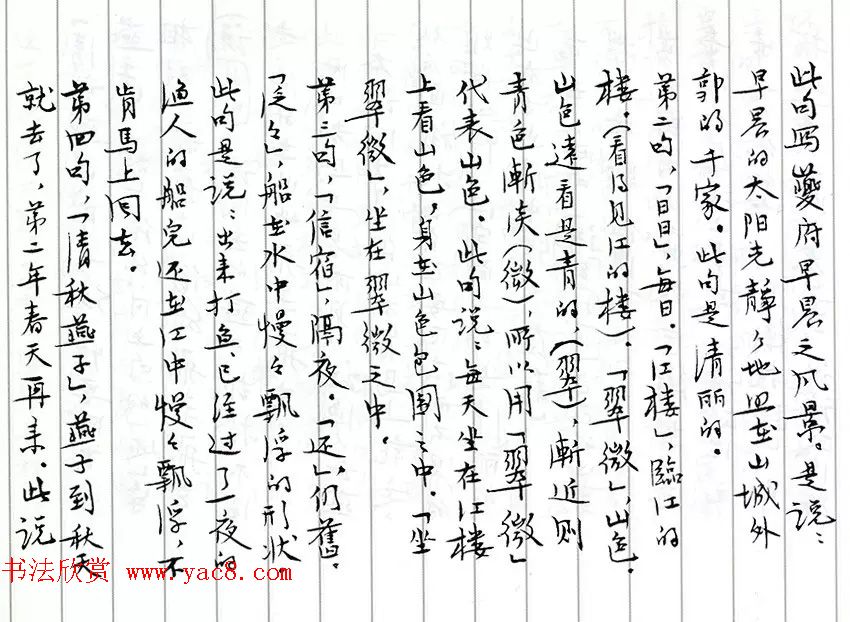 此句写夔府早晨之风景。是说：
早晨的太阳光静々地照在山城外
郭的千家。此句是清丽的。
第二句，「日日」，每日。「江楼」，临江的
楼。（看得见江的楼）。「翠微」，山色。
山色遠看是青的，（翠），漸近则
青色漸淡（微），所以用「翠微」
代表山色。此句说：每天坐在江楼
上看山色，身在山色包围之中。「坐
翠微」，坐在翠微之中。
第三句，「信宿」，隔夜。「还」，仍舊。
「泛々」，船在水中慢々飘浮的形状。
此句是说：出来打鱼、已经过了一夜的
渔人的船完还在江中慢々飘浮，不
肯馬上回去。
第四句，「清秋燕子」，燕子到秋天
就去了，第二年春天再来。此说
书法欣赏 www.yac8.com